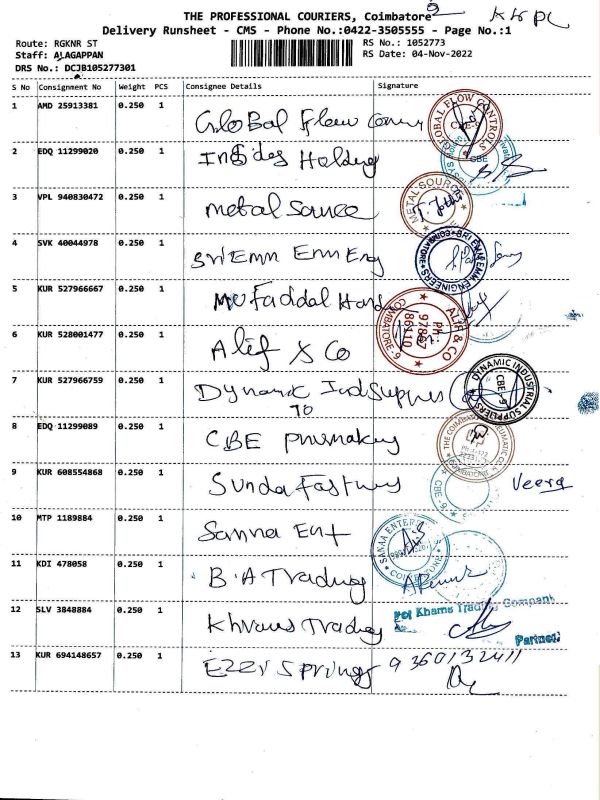 THE PROFESSIONAL COURIERS, Coimbatore
Delivery Runsheet - CMS - Phone No.:0422-3505555 - Page No.:1
Route: RGKNR ST RS No.: 1052773
Staff: ALAGAPPAN RS Date: 04-Nov-2022
DRS No.: DCJB105277301
S No Consignment No Weight PCS Consignee Details Signature
1 AMD 25913381 0.250 1 Global Flow GLOBAL FLOW CONTROLS
2 EDQ 11299020 0.250 1 Insides Holding CBE
3 VPL 940830472 0.250 1 metal Source METAL SOURCE
4 SVK 40044978 0.250 1 Sri Emm Enn Eng SRI EMM ENN ENGINEERS COIMBATORE
5 KUR 527966667 0.250 1 Mufaddal Hard
6 KUR 528001477 0.250 1 Alif & Co ALIF & CO PH: 97867 86110 COIMBATORE
7 KUR 527966759 0.250 1 Dynamic Ind Suppres DYNAMIC INDUSTRIAL SUPPLIERS CBE-9
To
8 EDQ 11299089 0.250 1 CBE THE COIMBATORE
9 KUR 608554868 0.250 1 Sunda Fastnrs CBE-6 Veera
10 MTP 1189884 0.250 1 Sanna Ent SANAA ENTER COIMBATORE
11 KDI 478058 0.250 1 B.A Trading
12 SLV 3848884 0.250 1 Trading For Khams Trading Company
Partner
13 KUR 694148657 0.250 1 Ezzy Springs 9360132411